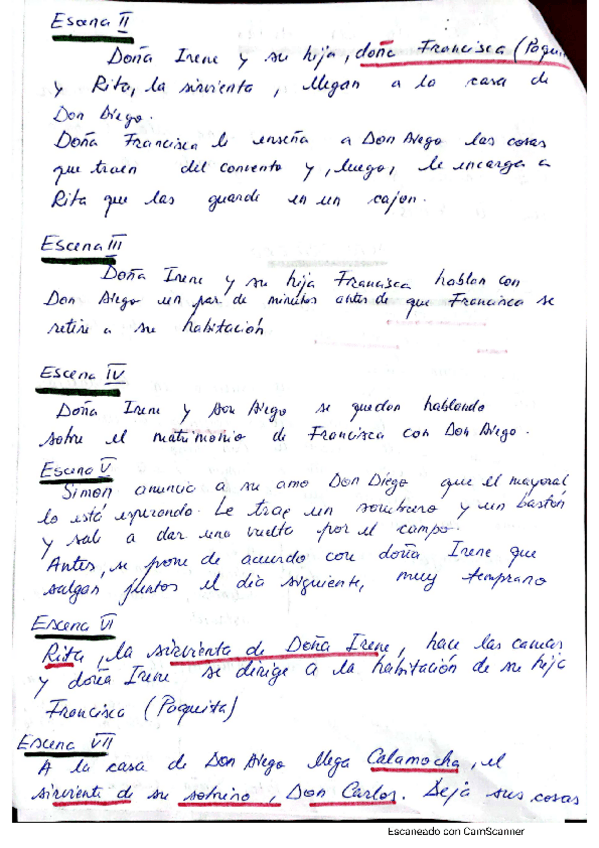 Escena II
Doña Irene y su hija, doña Francisca (Paquit
y Rita, la sirvienta, llegan a la casa de
Don Diego.
Doña Francisca le enseña a Don Diego las cosas
que traen del convento y, luego, le encarga a
Rita que las guarde en un cajon.
Escena III
Doña Irene y su hija Francisca hablan con
Don Diego un par de minutos antes de que Francisca se
retire a su habitación
Escena IV
Doña Irene y Don Diego se quedan hablando
sobre el matrimonio de Francisca con Don Diego.
Escena V
Simón anuncia a su amo Don Diego que el mayoral
lo está esperando. Le trae un sombrero y un bastón
y sale a dar una vuelta por el campo.
Antes, se pone de acuerdo con doña Irene que
salgan juntos el día siguiente, muy temprano
Escena VI
Rita, la sirvienta de Doña Irene, hace las camas
y doña Irene se dirige a la habitación de su hija
Francisca (Paquita)
Escena VII
A la casa de Don Diego llega Calamocha, el
sirviente de su sobrino, Don Carlos. Deja sus cosas
Escaneado con CamScanner